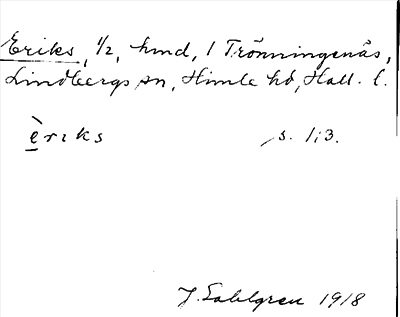 Eriks, 1/2, hmd, 1 Trönningenäs,
Lindbergs sn, Himle hd, Hall. l.
èrıks s. 1; 3.
J. Sahlgren 1918